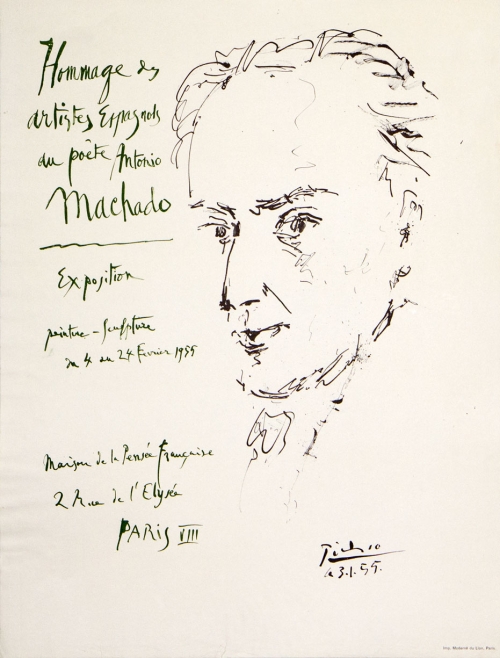 Hommage des
artistes Espagnols
au poète Antonio
Machado
Exposition
peinture - Sculpture
du 4 au 24 Février 1955
Maison de la Pensée Française
2 Rue de l'Elysée
PARIS VIII
Picasso
le 3.1.55.
Imp. Mazarine du Lion, Paris